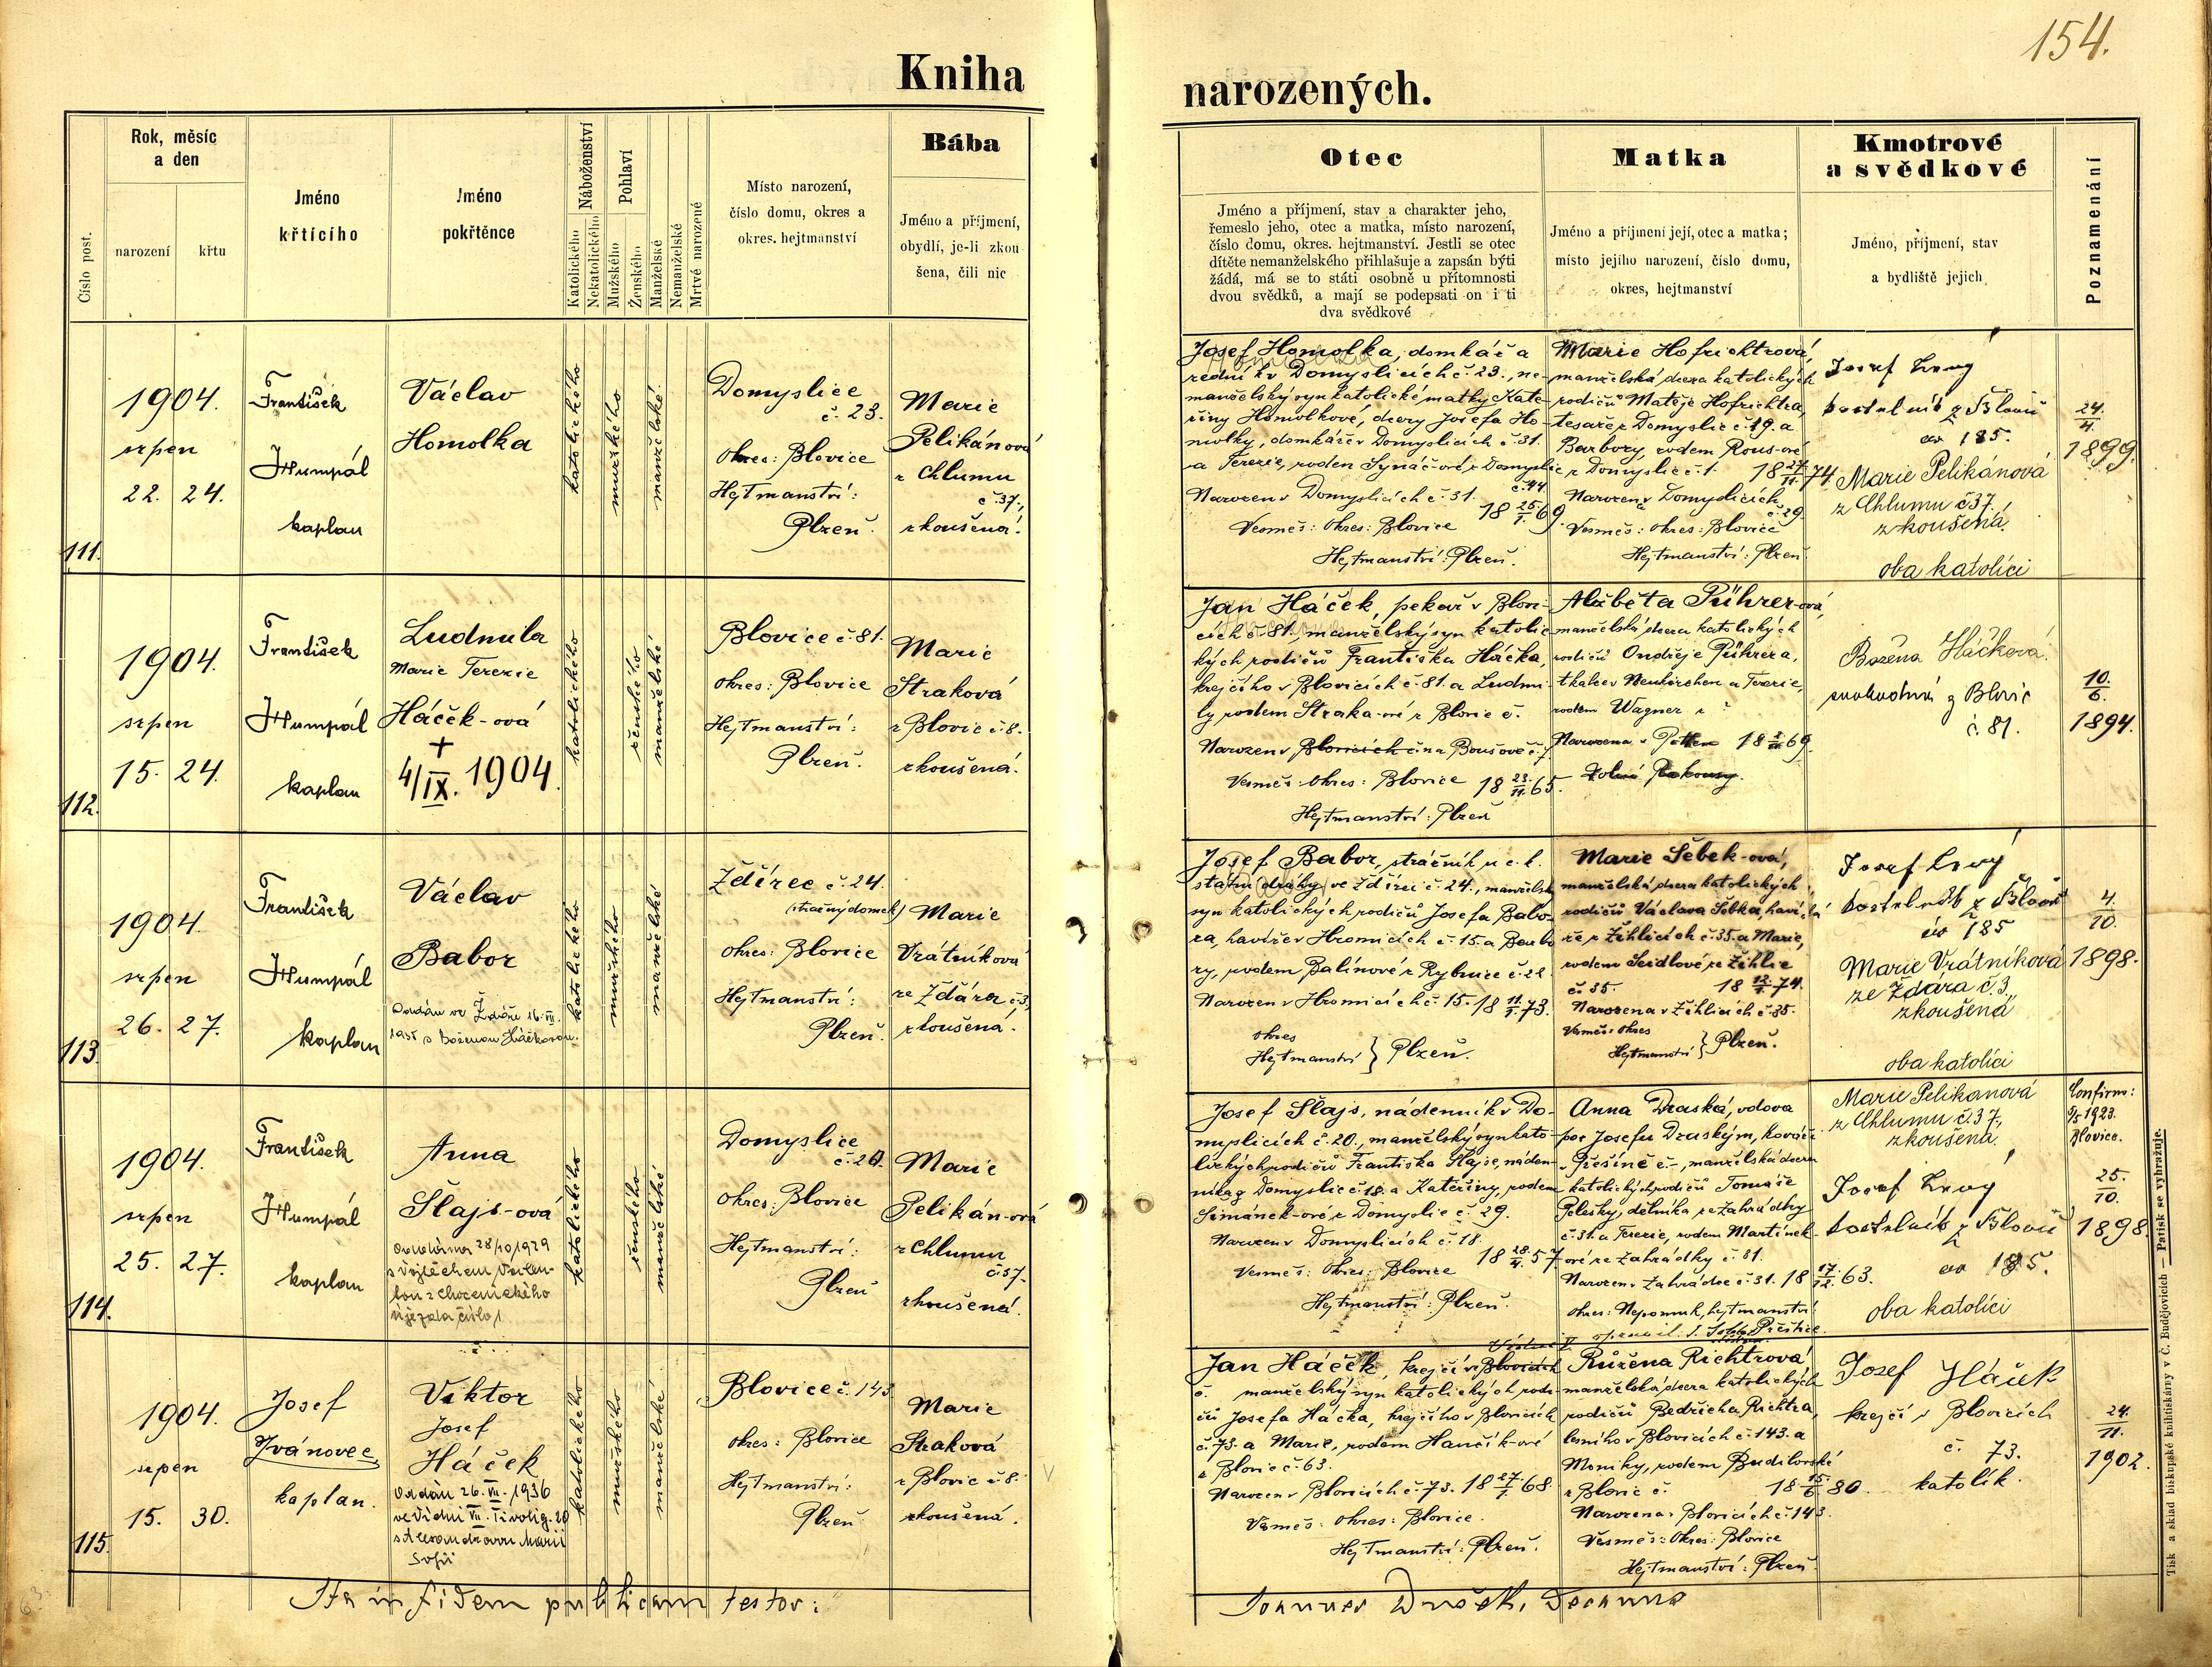 154.
Kniha narozených.
Číslo post.
Rok, měsíc
a den
narození
křtu
Jméno
křtícího
Jméno
pokřtěnce
Náboženství
Katolického
Nekatolického
Pohlaví
Mužského
Ženského
Manželské
Nemanželské
Mrtvě narozené
Místo narození,
číslo domu, okres a
okres. hejtmanství
Bába
Jméno a příjmení,
obydlí, je-li zkou
šena, čili nic
Otec
Jméno a příjmení, stav a charakter jeho,
řemeslo jeho, otec a matka, místo narození,
číslo domu, okres. hejtmanství. Jestli se otec
dítěte nemanželského přihlašuje a zapsán býti
žádá, má se to státi osobně u přítomnosti
dvou svědků, a mají se podepsati on i ti
dva svědkové
Matka
Jméno a příjmení její, otec a matka;
místo jejího narození, číslo domu,
okres, hejtmanství
Kmotrové
a svědkové
Jméno, příjmení, stav
a bydliště jejich
Poznamenání
111.
1904.
srpen
22. 24.
František
Humpál
kaplan
Václav
Homolka
katolického
mužského
manželské
Domyslice
č. 23.
Okres: Blovice
Hejtmanství:
Plzeň.
Marie
Pelikánová
z Chlumu
č. 37.,
zkoušená.
Josef Homolka, domkář a
zedník v Domyslicích č. 23., ne-
manželský syn katolické matky Kate-
řiny Homolkové, dcery Josefa Ho-
molky, domkáře v Domyslicích č. 31.
a Terezie, rozen Synáč-ové z Domyslic
č. 44
Narozen v Domyslicích č. 31.
18 25/1. 69.
Vesměs: Okres: Blovice
Hejtmanství: Plzeň.
Marie Hofrichtrová,
manželská dcera katolických
rodičů Matěje Hofrichtra,
tesaře z Domyslic č. 19. a
Barbory, rodem Rous-ové
z Domyslic č. 1. 18 27/11. 74.
Narozena v Domyslicích
č. 29.
Vesměs: Okres: Blovice
Hejtmanství: Plzeň
Josef Levý
kostelník z Blovic
čp 185.
Marie Pelikánová
z Chlumu č 37.
zkoušená.
oba katolíci
24./4.
1899.
112.
1904.
srpen
15. 24.
František
Humpál
kaplan
Ludmila
Marie Terezie
Háček-ová
+
4/IX. 1904.
katolického
ženského
manželské
Blovice č. 81.
Okres: Blovice
Hejtmanství:
Plzeň.
Marie
Straková
z Blovic č. 8.
zkoušená.
Jan Háček, pekař v Blovi-
cích č. 81., manželský syn katolic-
kých rodičů Františka Háčka,
krejčího v Blovicích č. 81. a Ludmi-
ly, rodem Straka-ové z Blovic č.
Narozen v Blovicích č. na Boušově č. 7
Vesměs: Okres: Blovice 18 23/11. 65.
Hejtmanství: Plzeň
Alžběta Pührer-ová,
manželská dcera katolických
rodičů Ondřeje Pührera,
tkalce v Neukirchen a Terezie,
rodem Wagner z ?
Narozena v 69.
Dolní Rakousy.
Božena Háčková
svobodná z Blovic
č. 81.
10./6.
1894.
113.
1904.
srpen
26. 27.
František
Humpál
kaplan
Václav
Babor
Oddán ve Ždáře 16. VII.
1935 s Boženou Háčkovou.
katolického
mužského
manželské
Ždírec č. 24.
(strážný domek)
Okres: Blovice
Hejtmanství:
Plzeň.
Marie
Vrátníková
ze Ždára č. 3,
zkoušená.
Josef Babor, strážník u c. k.
státní dráhy ve Ždírci č. 24., manželský
syn katolických rodičů Josefa Babo-
ra, havíře v Hromicích č. 15. a Barbo-
ry, rodem Balínové z Rybnice č. 22.
Narozen v Hromicích č. 15. 18 11/3. 73.
Okres
Hejtmanství } Plzeň.
Marie Šebek-ová,
manželská dcera katolických
rodičů Václava Šebka, haví-
ře z Žihlicích č. 35. a Marie,
rodem Seidlové ze Žihlic
č. 35. 74.
Narozena v Žihlicích č. 35.
Vesměs: Okres
Hejtmanství } Plzeň.
Josef Levý
kostelník z Blovic
čp 185
Marie Vrátníková
ze Ždára č. 3,
zkoušená
oba katolíci
4./10.
1898.
114.
1904.
srpen
25. 27.
František
Humpál
kaplan
Anna
Šlajs-ová
Oddána 28/10 1929
s Vojtěchem
z Chocenického
Újezda číslo 1.
katolického
ženského
manželské
Domyslice
č. 20.
Okres: Blovice
Hejtmanství:
Plzeň
Marie
Pelikán-ová
z Chlumu
č. 37.
zkoušená.
Josef Šlajs, nádenník v Do-
myslicích č. 20., manželský syn kato-
lických rodičů Františka Šlajse, náden-
níka z Domyslic č. 18. a Kateřiny, rodem
Šimánek-ové z Domyslic č. 29.
Narozen v Domyslicích č. 18.
Vesměs: Okres: Blovice 57
Hejtmanství: Plzeň.
Anna Draská, vdova
po Josefu Draským, kováři
v Přešíně č. -, manželská dcera
katolických rodičů Tomáše
Pelešky, dělníka ze Zahrádky
č. 31. a Terezie, rodem Martínek-
ové ze Zahrádky č. 31.
Narozena v Zahrádce č. 31. 18 17/12. 63.
Okres: Nepomuk, hejtmanství
Přeštice.
Marie Pelikanová
z Chlumu č. 37.,
zkoušená.
Josef Levý
kostelník z Blovic
čp 185.
oba katolíci
Confirm:
1923.
Blovice.
25./10.
1898.
115.
1904.
srpen
15. 30.
Josef
Ivánovec
kaplan.
Viktor
Josef
Háček
Oddán 26. VII. 1936
ve Vídni VII. Tivolig. 20
s Alexandrovou Marií
Sofií
katolického
mužského
manželské
Blovice č. 143
Okres: Blovice
Hejtmanství:
Plzeň
Marie
Straková
z Blovic č. 8.
zkoušená.
Jan Háček, krejčí v Blovicích
č. manželský syn katolických rodi-
čů Josefa Háčka, krejčího v Blovicích
č. 73. a Marie, rodem Hančík-ové
z Blovic č. 63.
Narozen v Blovicích č. 73. 18 27/1. 68.
Vesměs: Okres: Blovice.
Hejtmanství: Plzeň.
Růžena Richtrová
manželská dcera katolických
rodičů Bedřicha Richtra,
lesního v Blovicích č. 143. a
Moniky, rodem Budilovské
z Blovic č. 18 15/6 80.
Narozena v Blovicích č. 143.
Vesměs: Okres: Blovice
Hejtmanství: Plzeň
Josef Háček
krejčí v Blovicích
č. 73.
katolík.
24./11.
1902.
Ita in fidem publicam testor:
Joannes Dušek, Decanus
Tisk a sklad biskupské knihtiskárny v Č. Budějovicích — Patisk se vyhražuje.